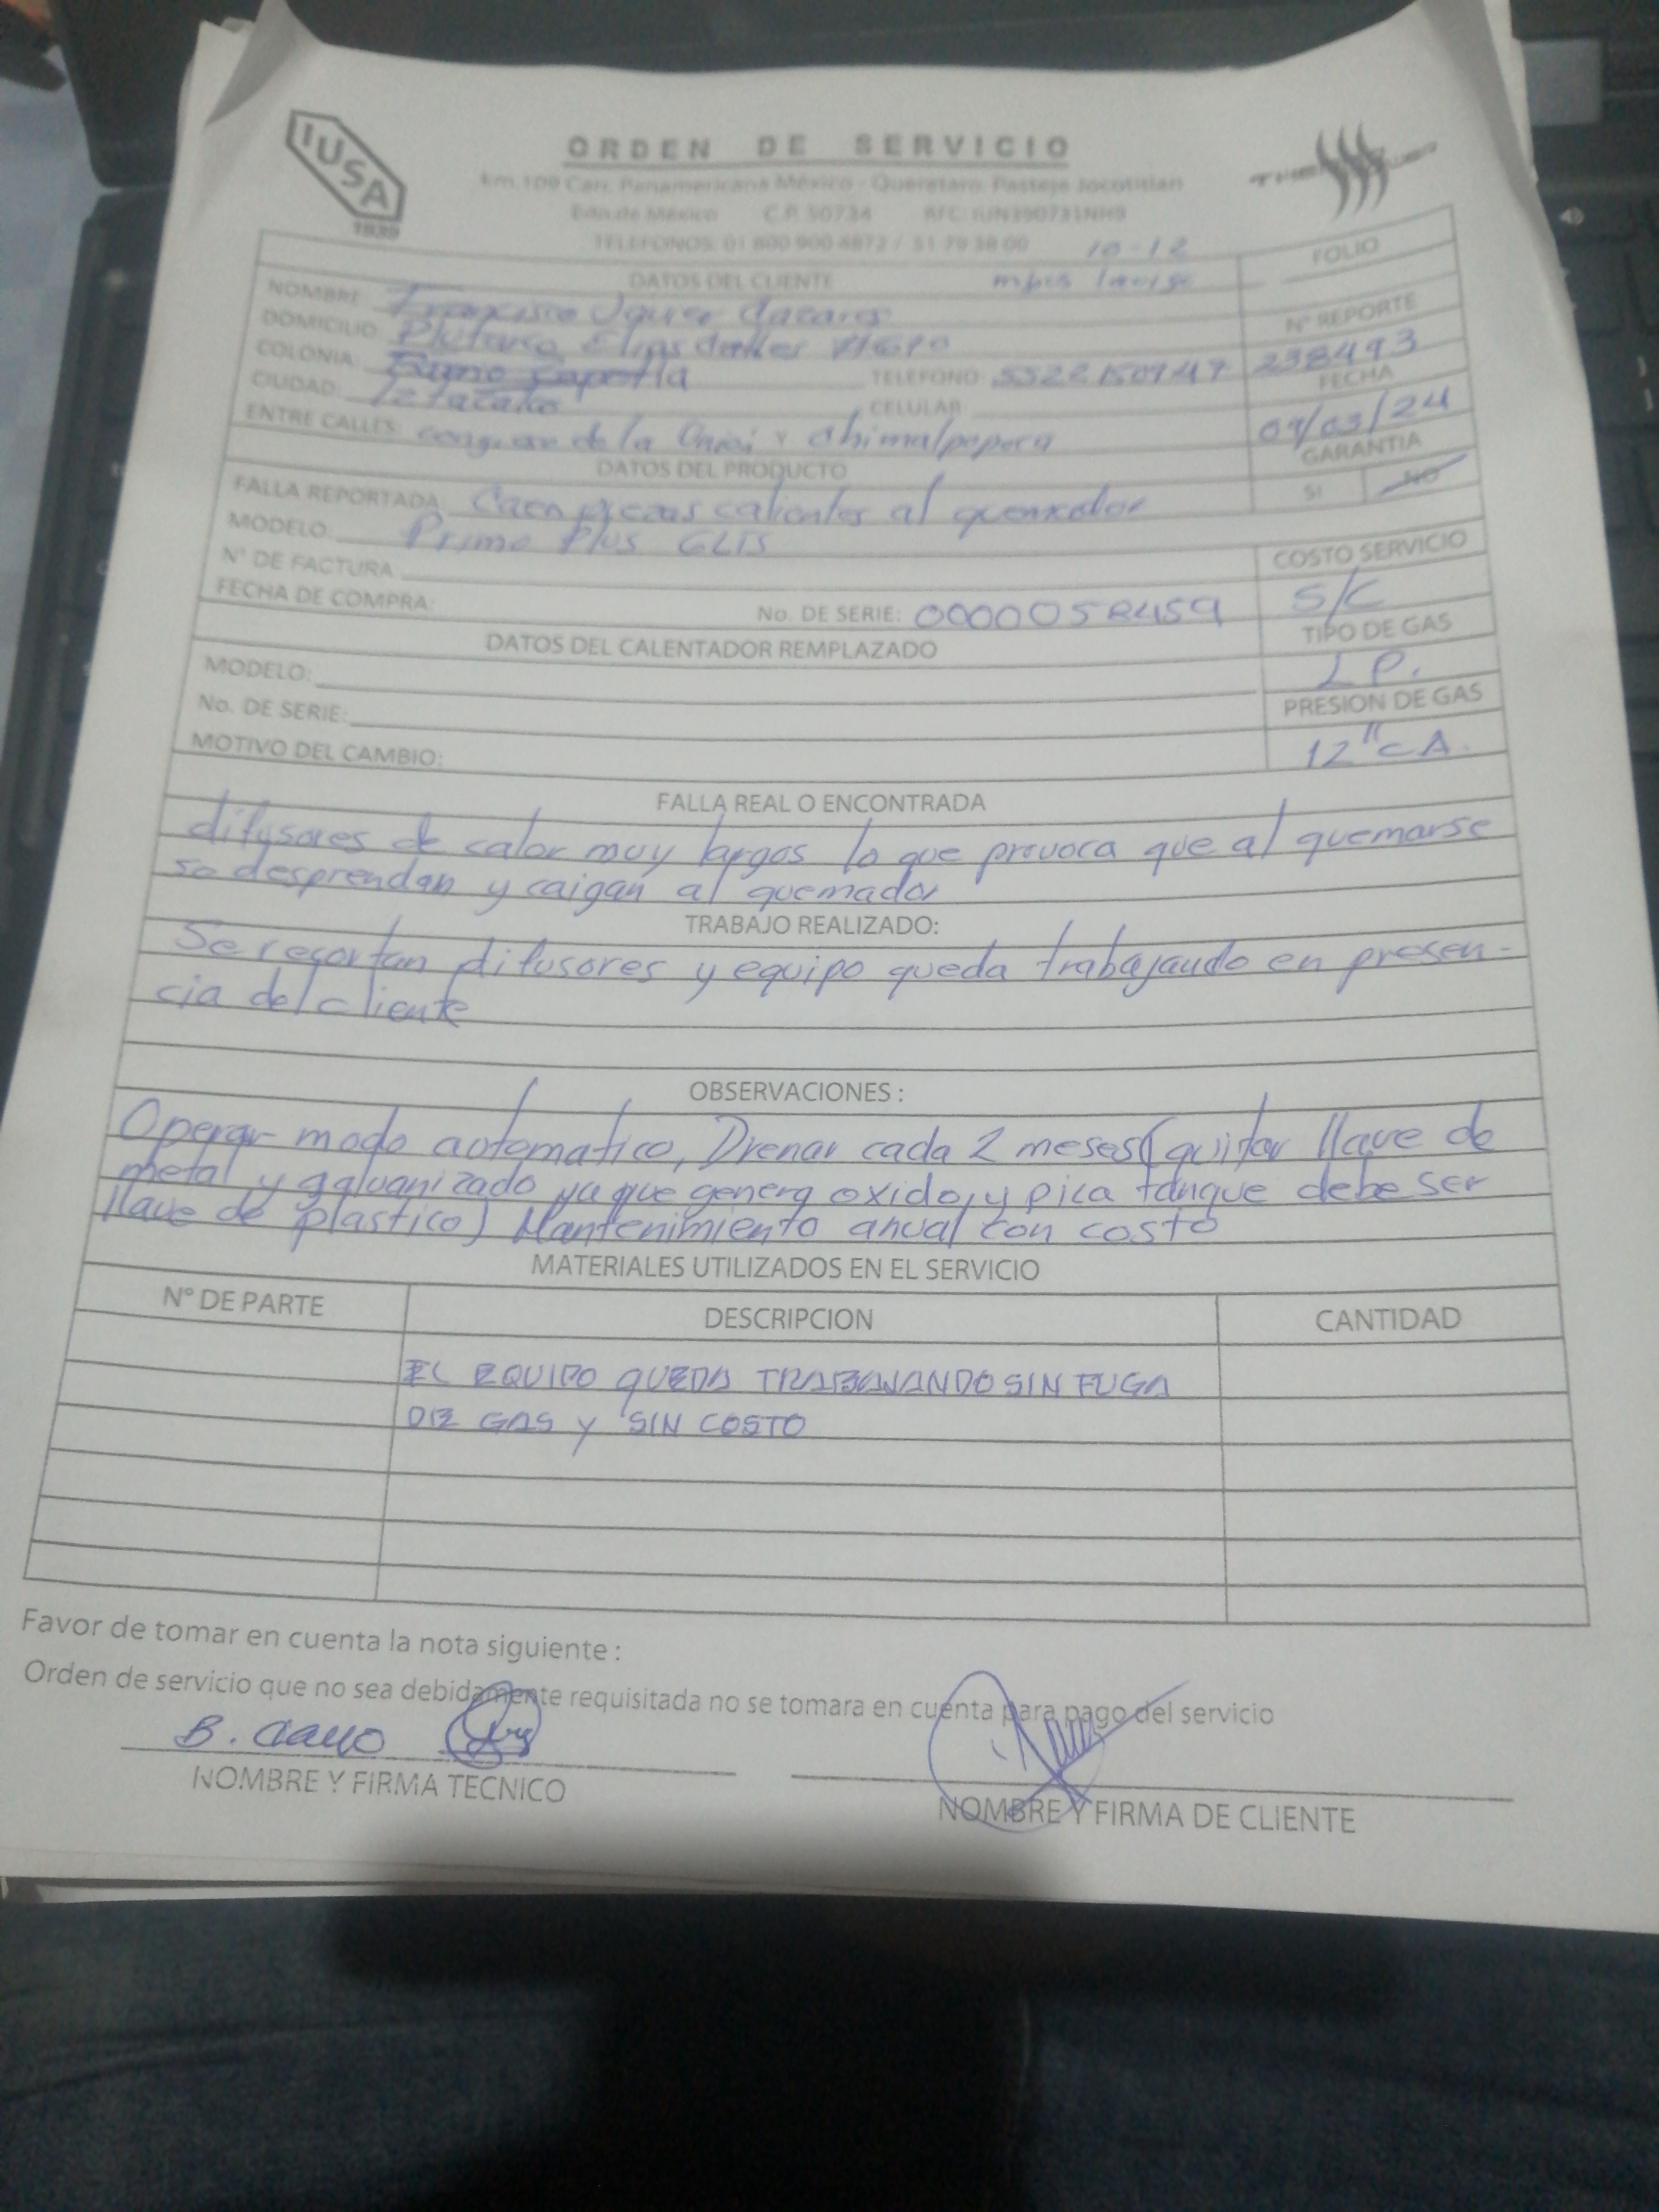 IUSA
1939
ORDEN DE SERVICIO
km.109 Carr. Panamericana México - Queretaro, Pasteje Jocotitlan
Edo.de México C.P. 50734 RFC: IUN390731NH9
TELEFONOS: 01 800 900 4872 / 51 79 38 00 10-12
DATOS DEL CLIENTE
FOLIO
NOMBRE Francisco
DOMICILIO: Plutarco Elias
COLONIA: Zapotla
TELEFONO: 5522150947
Nº REPORTE
238493
CIUDAD: Iztacalco
CELULAR:
FECHA
09/03/24
ENTRE CALLES: de la y Chimalpopoca
DATOS DEL PRODUCTO
GARANTIA
SI NO
FALLA REPORTADA Caen piezas calientes al quemador
MODELO: Prime Plus
Nº DE FACTURA
COSTO SERVICIO
S/C
FECHA DE COMPRA: No. DE SERIE:
DATOS DEL CALENTADOR REMPLAZADO
TIPO DE GAS
L P.
MODELO:
No. DE SERIE:
PRESION DE GAS
12" CA.
MOTIVO DEL CAMBIO:
FALLA REAL O ENCONTRADA
difusores de calor muy largos lo que provoca que al quemarse
se desprendan y caigan al quemador
TRABAJO REALIZADO:
Se recortan difusores y equipo queda trabajando en presen-
cia del cliente
OBSERVACIONES :
Operar modo automatico, Drenar cada 2 meses (quitar llave de
metal y galvanizado ya que genera oxido, y pica tanque debe ser
llave de plastico) Mantenimiento anual con costo
MATERIALES UTILIZADOS EN EL SERVICIO
Nº DE PARTE DESCRIPCION CANTIDAD
EL EQUIPO QUEDA TRABAJANDO SIN FUGA
DE GAS Y SIN COSTO
Favor de tomar en cuenta la nota siguiente :
Orden de servicio que no sea debidamente requisitada no se tomara en cuenta para pago del servicio
B.
NOMBRE Y FIRMA TECNICO
NOMBRE Y FIRMA DE CLIENTE